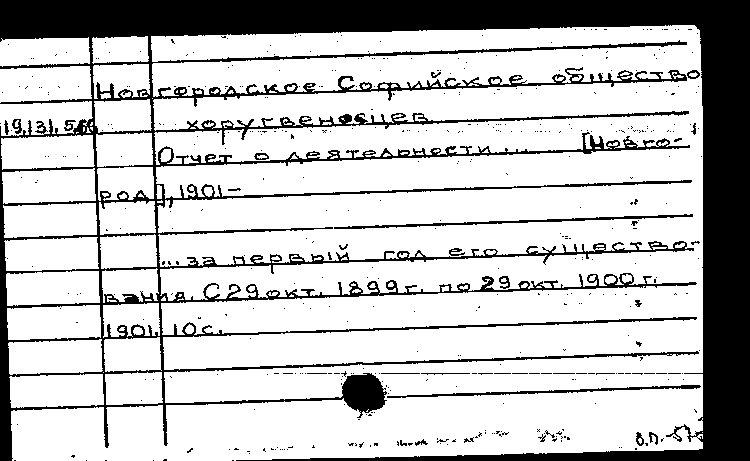 Новгородское Софийское общество
19.131.5.66 хоругвеносцев
Отчет о деятельности... [Новго-
род], 1901–
...за первый год его существо-
вания. С 29 окт. 1899 г. по 29 окт. 1900 г.
1901. 10 с.